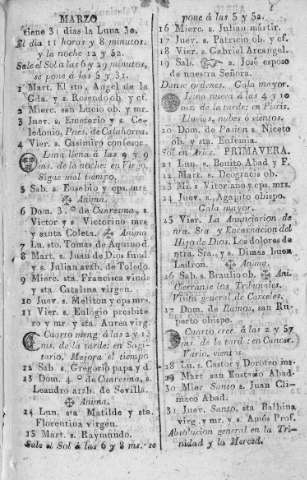 MARZO
tiene 31 dias la Luna 30.
El dia 11 horas y 8 minutos,
y la noche 12 y 52.
Sale el Sol á las 6 y 29 minutos,
se pone á las 5 y 31.
1 Mart. El sto. Angel de la
Gda. y s. Rosendo ob. y cf.
2 Mierc. san Lucio ob. y mr.
3 Juev. s. Emeterio y s. Ce-
ledonio, Pnes. de Calahorra.
4 Vier. s. Casimiro confesor
Luna llena á las 9 y 9
ms. de la noche: en Virgo.
Sigue mal tiempo.
5 Sab. s. Eusebio y cps. mrs.
Anima.
6 Dom. 3.º de Cuaresma, s.
Victor y s. Victorino mrs.
y santa Coleta. Anima
7 Lu. sto. Tomas de Aquino d.
8 Mart. s. Juan de Dios fund.
y s. Julian arzb. de Toledo.
9 Mierc. sta. Francisca viuda
y sta. Catalina virgen.
10 Juev. s. Meliton y cps mrs.
11 Vier. s. Eulogio presbite-
ro y mr. y sta. Aurea virg.
Cuarto meng. á las 2 y 13
ms. de la tarde: en Sagi-
tario. Mejora el tiempo
12 Sab. s. Gregorio papa y d.
13 Dom. 4.º de Cuaresma, s.
Leandro arzb. de Sevilla.
Anima.
14 Lun. sta Matilde y sto.
Florentina virgen.
15 Mart. s. Raymundo.
Sale el Sol á las 6 y 8 ms. se
pone á las 5 y 52.
16 Mierc. s. Julian mártir.
17 Juev. s. Patricio ob. y cf.
18 Vier. s. Gabriel Arcangel.
19 Sab. s. José esposo
de nuestra Señora.
Danse órdenes. Gala mayor.
Luna nueva á las 4 y
10 ms. de la tarde: en Piscis.
Lluvias, nubes ó vientos.
20 Dom. de Pasion s. Niceto
ob. y sta. Eufemia.
Sol en Aries. PRIMAVERA.
21 Lun. s. Benito Abad y F.
22 Mart. s. Deogracias ob.
23 Mi. s. Vitoriano y cps. mrs.
24 Juev. s. Agapito obispo.
Gala mayor.
25 Vier. La Anunciacion de
nra. Sra. y Encarnacion del
Hijo de Dios. Los dolores de
ntra. Sra., y s. Dimas buen
Ladron. Anima
26 Sab. s. Braulio ob. Ani.
Cierranse los Tribunales.
Visita general de Carceles.
27 Dom. de Ramos, san Ru-
perto obispo.
Cuarto crec. á las 2 y 57
ms. de la tarde: en Cancer.
Vario, vientos
28 Lu. s. Castor y Doroteo mrs.
29 Mart san Eustasio Abad.
30 Mier Santo s. Juan Cli-
maco Abad.
31 Juev. Santo, sta Balbina
virg. y mr. y s. Amós Prof.
Absolucion general en la Tri-
nidad y la Merced.